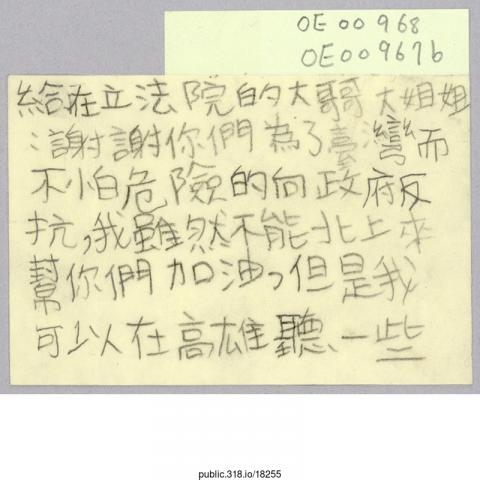 OE00968
OE00967b
給在立法院的大哥哥大姐姐
：謝謝你們為了臺灣而
不怕危險的向政府反
抗，我雖然不能北上來
幫你們加油，但是我
可以在高雄聽一些
public.318.io/18255